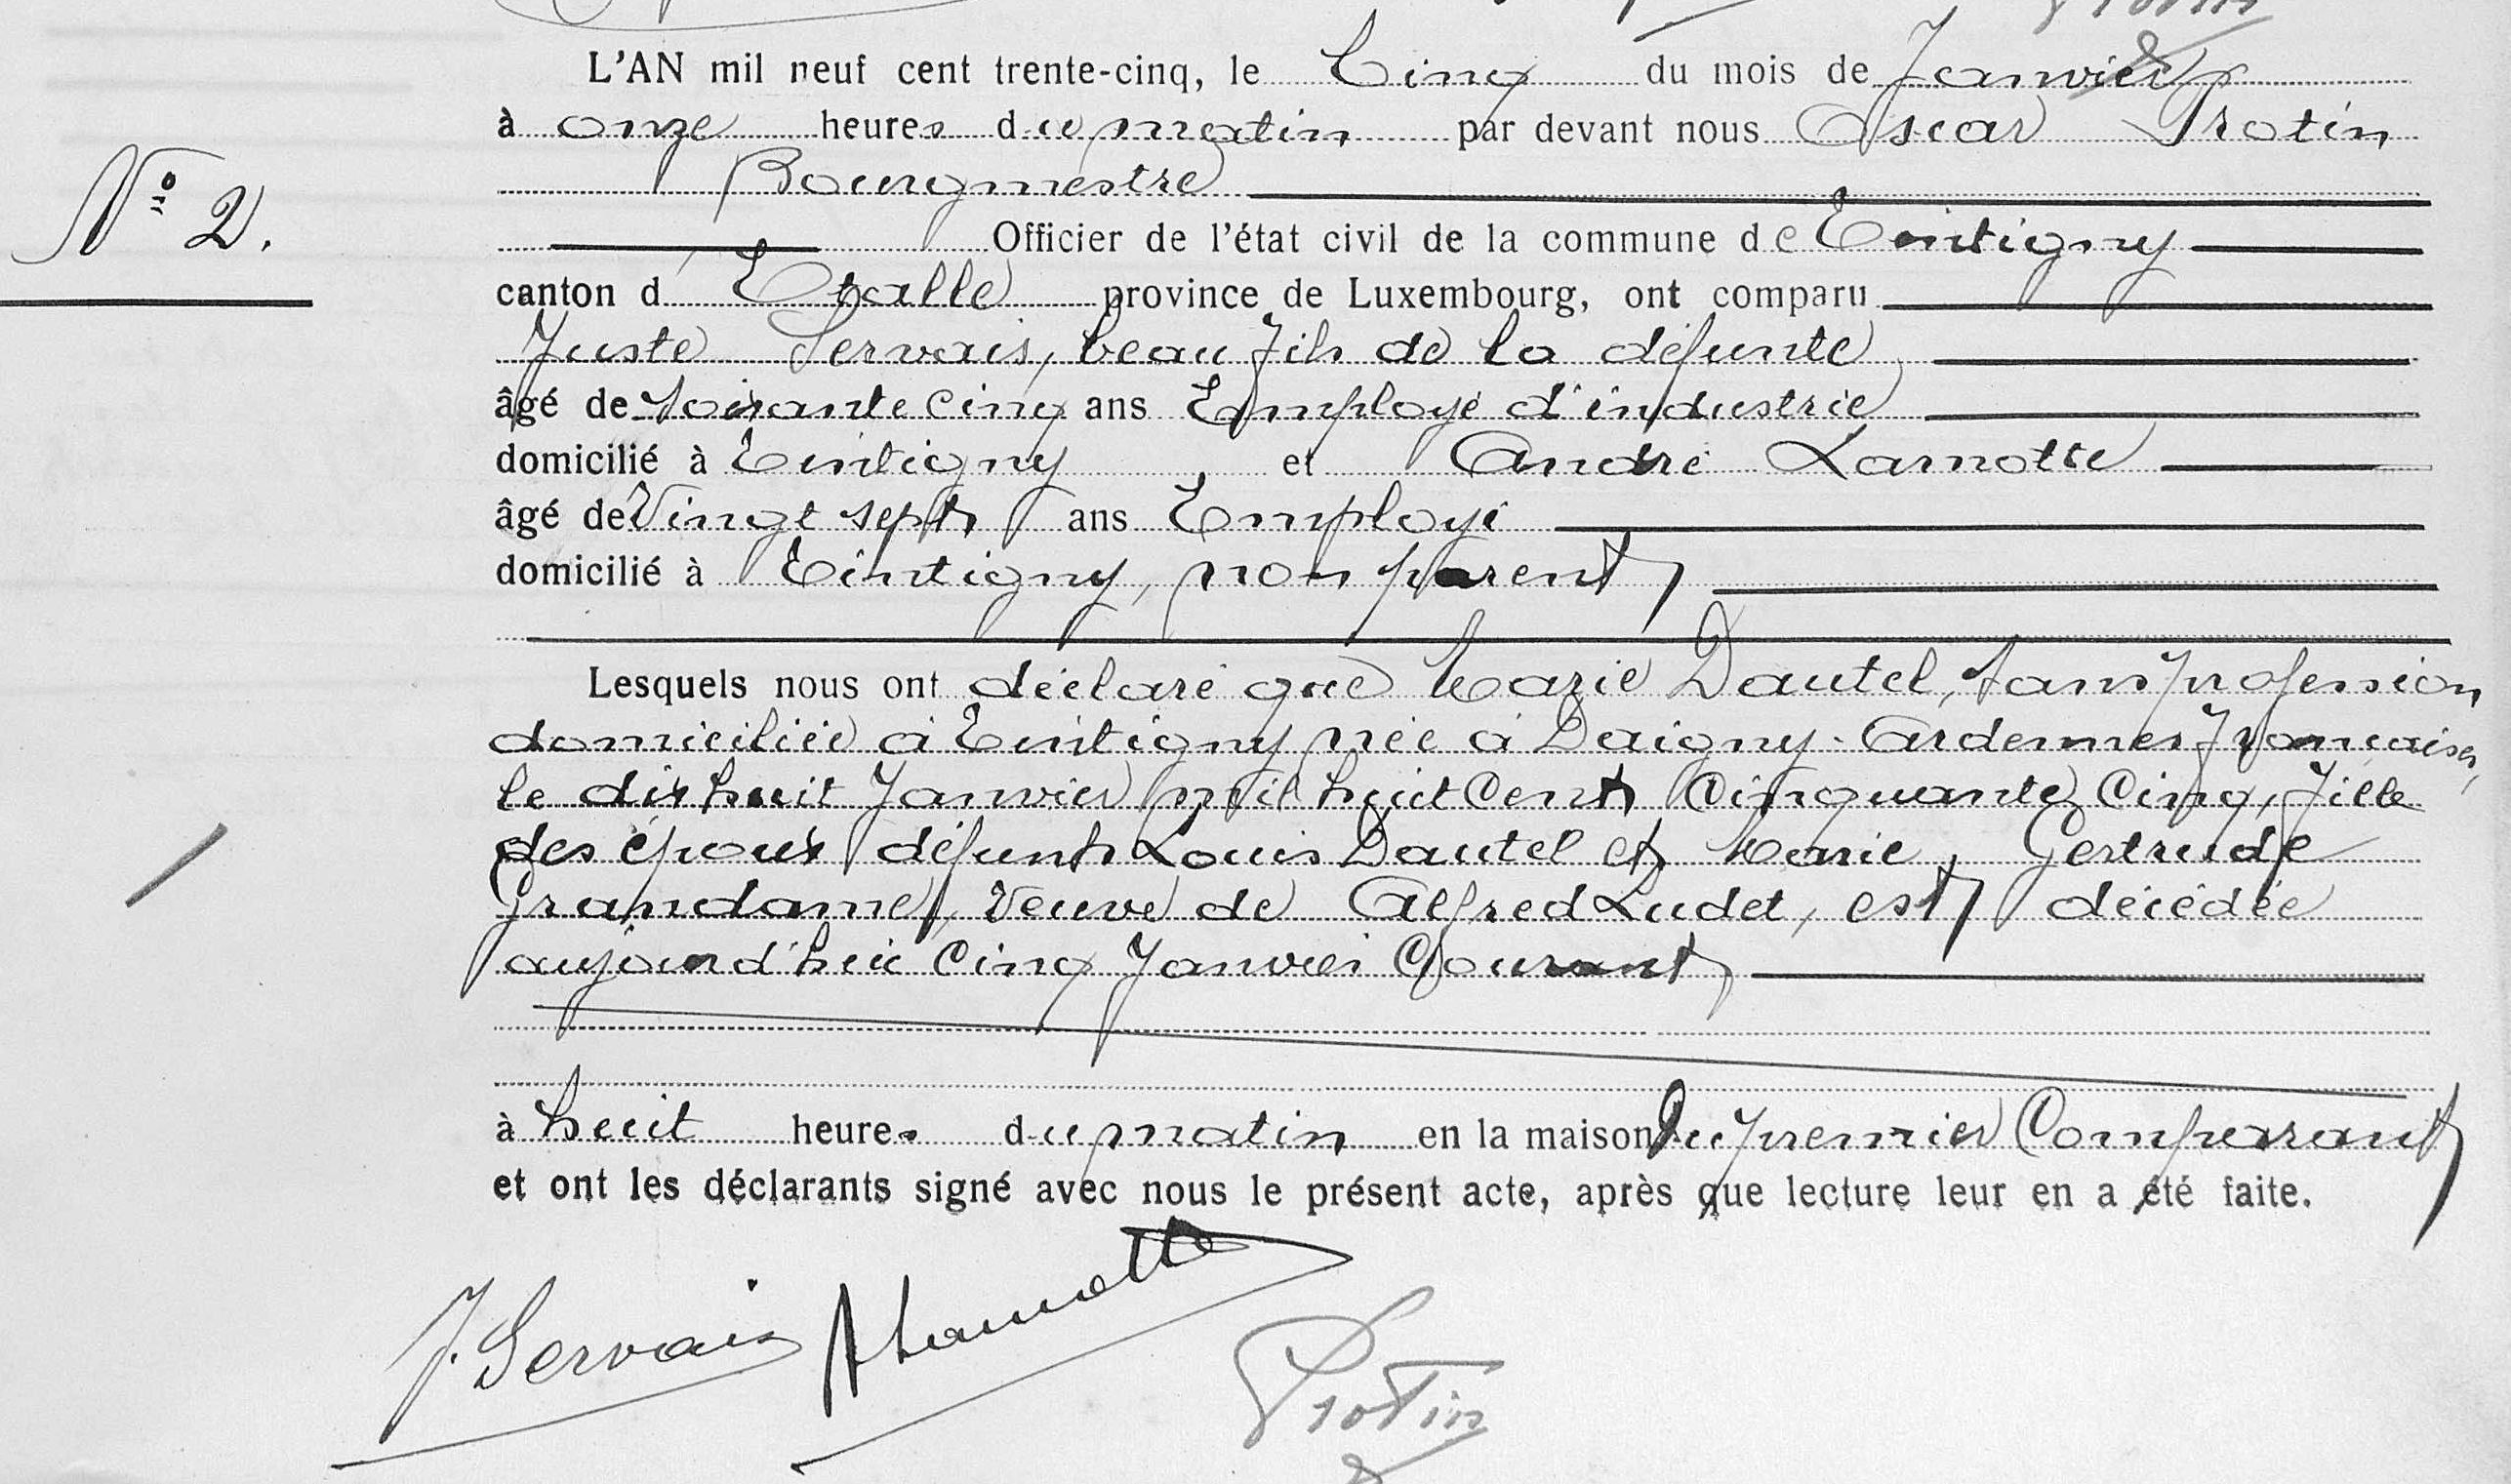 L'AN mil neuf cent trente-cinq, le Cinq du mois de Janvier
à onze heures du matin par devant nous Oscar Protin
Bourgmestre
N° 2.
Officier de l'état civil de la commune de Tintigny
canton d'Etalle province de Luxembourg, ont comparu
Juste Servais, beau fils de la défunte
âgé de soixante cinq ans Employé d'industrie
domicilié à Tintigny, et André Lamotte
âgé de Vingt sept ans Employé
domicilié à Tintigny, non parent
Lesquels nous ont déclaré que Marie Dautel, sans profession
domiciliée à Tintigny née à Daigny - Ardennes Françaises,
le dix huit Janvier mil huit Cent Cinquante Cinq, fille
des époux défunts Louis Dautel et Marie, Gertrude
Grandame, Veuve de Alfred Ludet, est décédée
aujourd'hui Cinq Janvier Courant
à huit heures du matin en la maison du premier Comparant
et ont les déclarants signé avec nous le présent acte, après que lecture leur en a été faite.
J. Servais A Lamotte
Protin